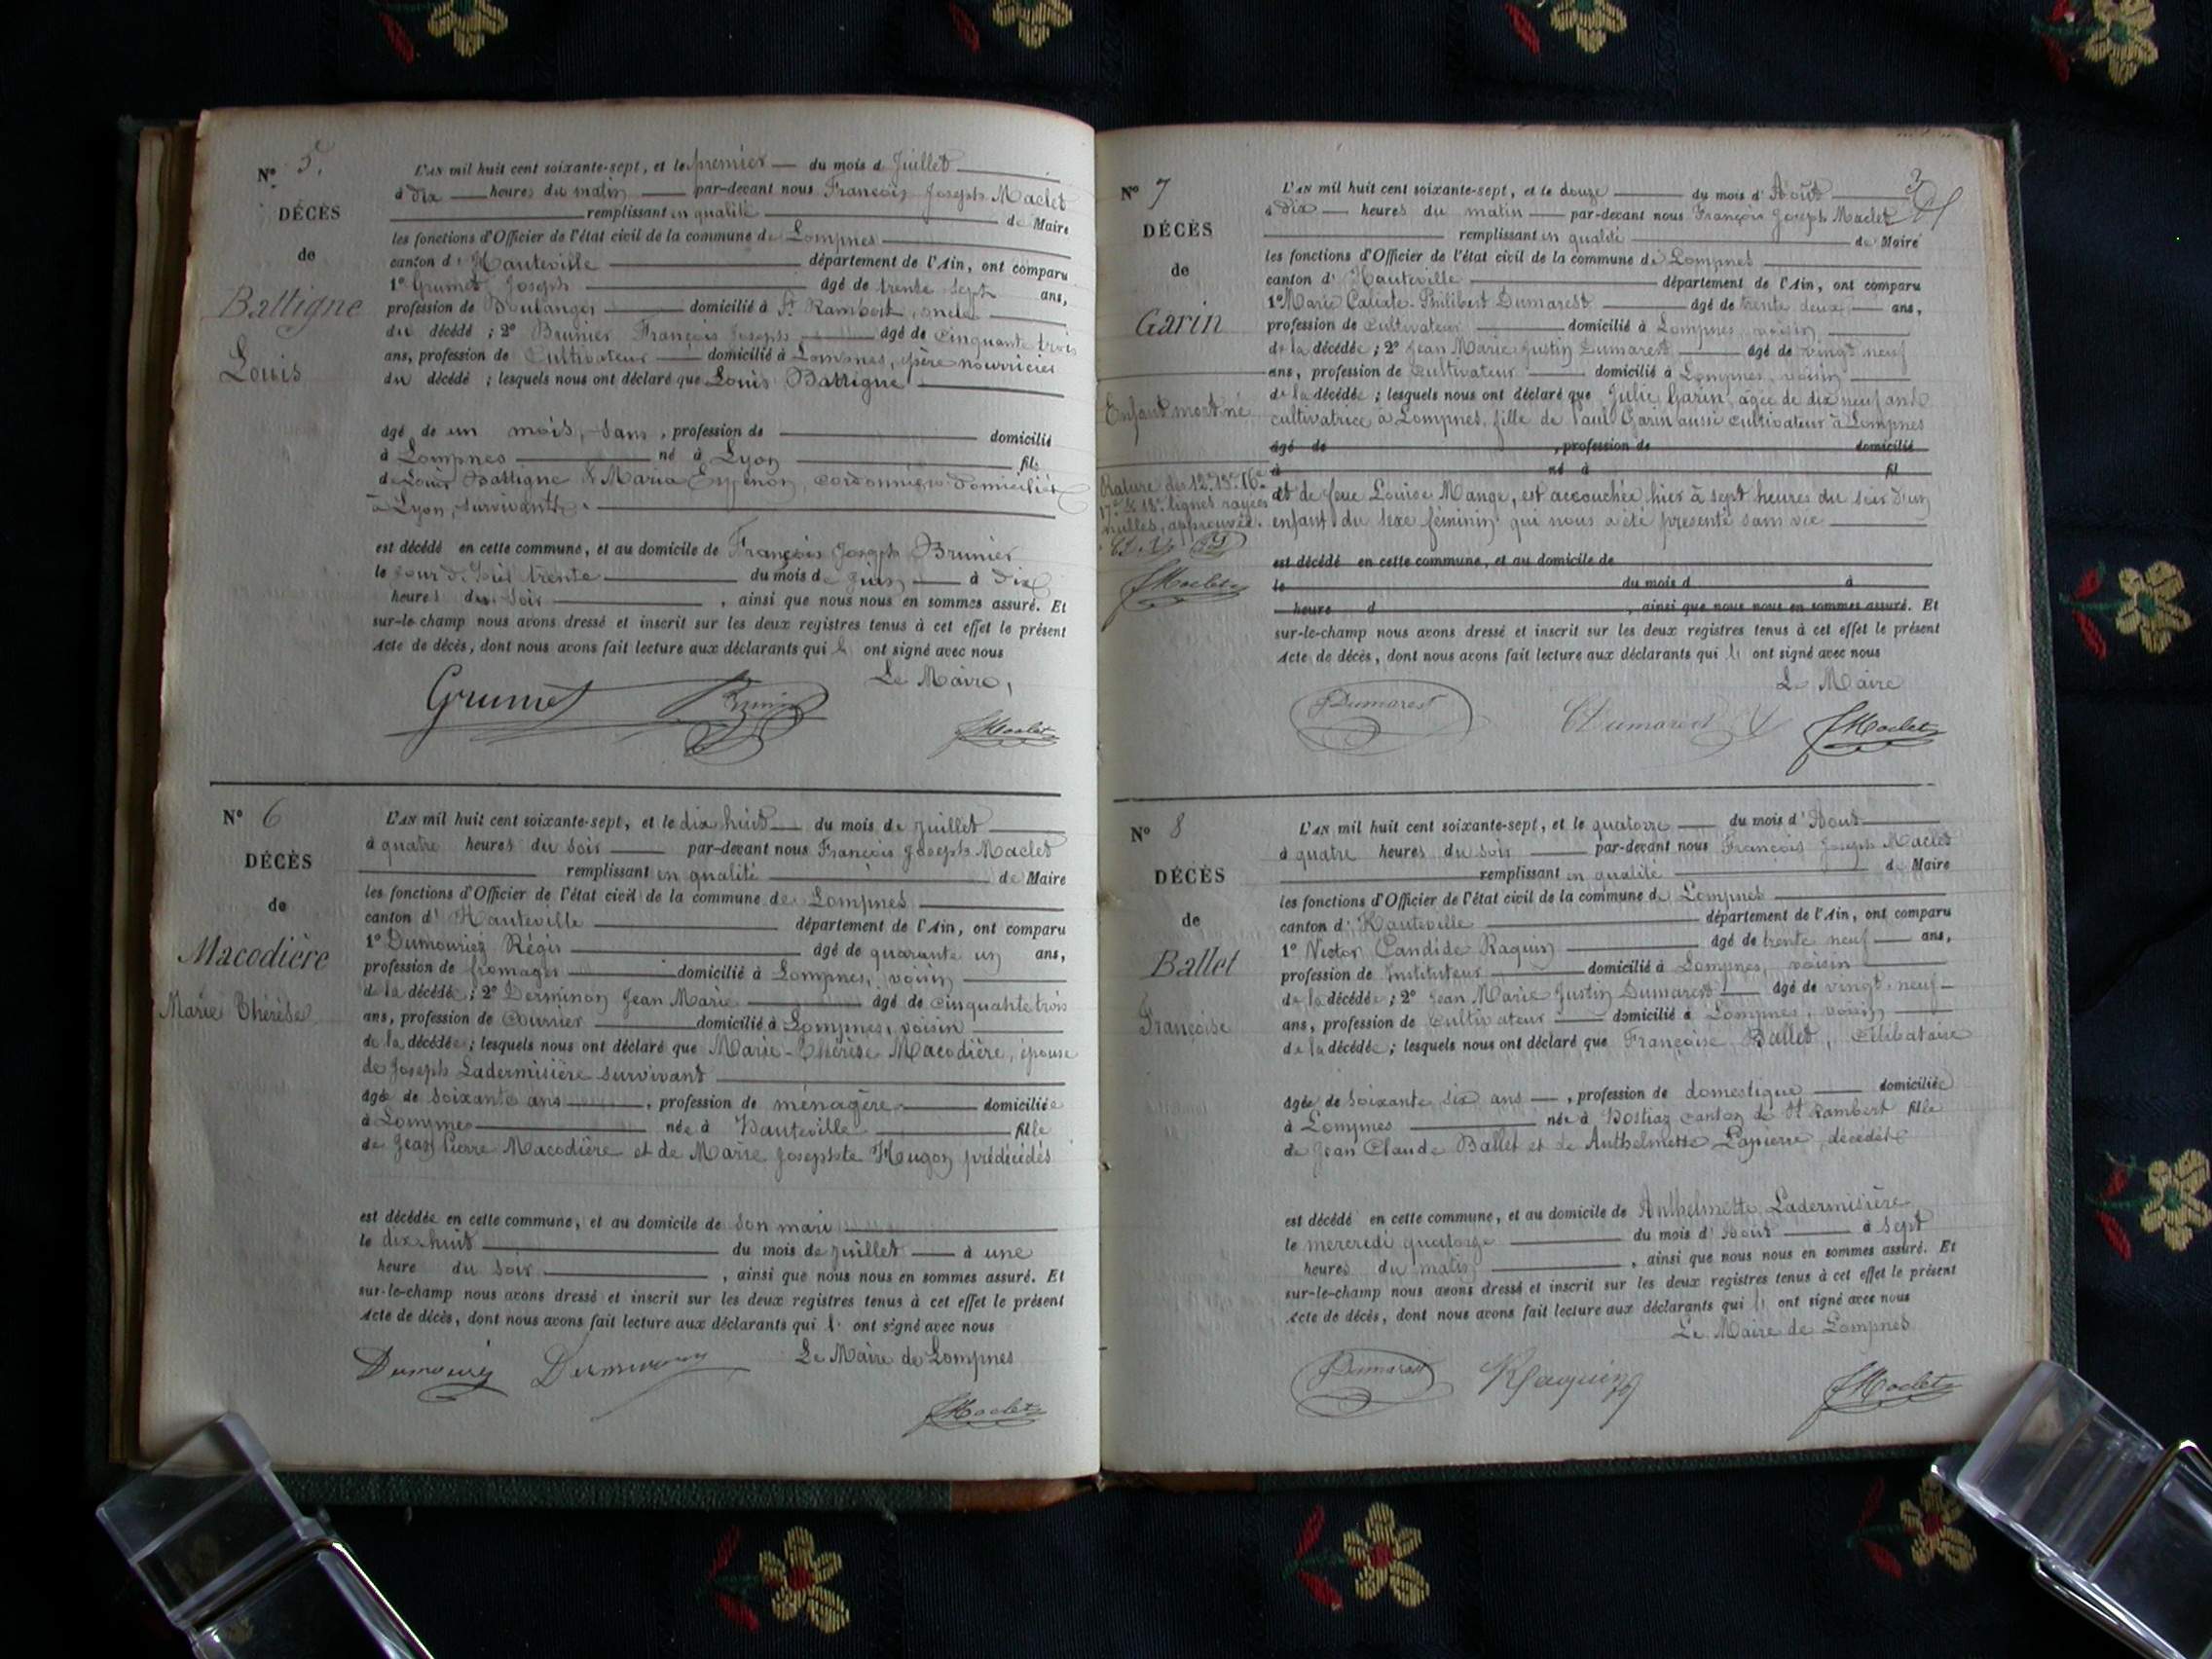 N° 5.
DÉCÈS
de
Battigne
Louis
L'AN mil huit cent soixante-sept, et le premier du mois d Juillet
à dix heures du matin par-devant nous François Joseph Maclet
remplissant en qualité de Maire
les fonctions d'Officier de l'état civil de la commune de Lompnes
canton d' Hauteville département de l'Ain, ont comparu
1° Grumet Joseph âgé de trente sept ans,
profession de Boulanger domicilié à St Rambert, oncle
du décédé ; 2° Brunier François Joseph âgé de cinquante trois
ans, profession de Cultivateur domicilié à Lompnes, père nourricier
du décédé ; lesquels nous ont déclaré que Louis Battigne
âgé de un mois, sans, profession de domicilié
à Lompnes né à Lyon fils
de Louis Battigne & Maria cordonniers domiciliés
à Lyon, survivants.
est décédé en cette commune, et au domicile de François Joseph Brunier
le jour d'hier trente du mois de Juin à dix
heures du soir , ainsi que nous nous en sommes assuré. Et
sur-le-champ nous avons dressé et inscrit sur les deux registres tenus à cet effet le présent
Acte de décès, dont nous avons fait lecture aux déclarants qui ont signé avec nous
Le Maire,
Grumet Brunier
JMaclet
N° 6
DÉCÈS
de
Macodière
Marie Thérèse
L'AN mil huit cent soixante-sept, et le dix huit du mois de juillet
à quatre heures du soir par-devant nous François Joseph Maclet
remplissant en qualité de Maire
les fonctions d'Officier de l'état civil de la commune de Lompnes
canton d' Hauteville département de l'Ain, ont comparu
1° Dumouriez Régis âgé de quarante un ans,
profession de fromager domicilié à Lompnes, voisin
de la décédée ; 2° Derminon Jean Marie âgé de cinquante trois
ans, profession de Courrier domicilié à Lompnes, voisin
de la décédée ; lesquels nous ont déclaré que Marie-Thérèse Macodière, épouse
de Joseph Ladermisière survivant
âgée de soixante ans , profession de ménagère domiciliée
à Lompnes née à Hauteville fille
de Jean Pierre Macodière et de Marie Josephte Hugon prédécédés
est décédée en cette commune, et au domicile de son mari
le dix-huit du mois de juillet à une
heure du soir , ainsi que nous nous en sommes assuré. Et
sur-le-champ nous avons dressé et inscrit sur les deux registres tenus à cet effet le présent
Acte de décès, dont nous avons fait lecture aux déclarants qui ont signé avec nous
Le Maire de Lompnes
JMaclet
3
N° 7
DÉCÈS
de
Garin
Enfant mort né
Rature des 12e 13e 16e
17e & 18e lignes rayées
nulles, approuvée.
JMaclet
L'AN mil huit cent soixante-sept, et le douze du mois d' Août
à dix heures du matin par-devant nous François Joseph Maclet
remplissant en qualité de Maire
les fonctions d'Officier de l'état civil de la commune de Lompnes
canton d' Hauteville département de l'Ain, ont comparu
1° Marie Calixte-Philibert Dumarest âgé de trente deux ans,
profession de Cultivateur domicilié à Lompnes, voisin
de la décédée ; 2° Jean Marie Justin Dumarest âgé de vingt neuf
ans, profession de Cultivateur domicilié à Lompnes, voisin
de la décédée ; lesquels nous ont déclaré que Julie Garin, âgée de dix neuf ans
cultivatrice à Lompnes, fille de Paul Garin aussi cultivateur à Lompnes
âgé de , profession de domicilié
à né à fil
et de feue Louise Mange, est accouchée hier à sept heures du soir d'un
enfant du sexe féminin qui nous a été présenté sans vie
est décédé en cette commune, et au domicile de
le du mois d à
heure d , ainsi que nous nous en sommes assuré. Et
sur-le-champ nous avons dressé et inscrit sur les deux registres tenus à cet effet le présent
Acte de décès, dont nous avons fait lecture aux déclarants qui ont signé avec nous
Le Maire
JDumarest CDumarest JMaclet
N° 8
DÉCÈS
de
Ballet
Françoise
L'AN mil huit cent soixante-sept, et le quatorze du mois d' Aout
à quatre heures du soir par-devant nous François Joseph Maclet
remplissant en qualité de Maire
les fonctions d'Officier de l'état civil de la commune de Lompnes
canton d' Hauteville département de l'Ain, ont comparu
1° Victor Candide Raquin âgé de trente neuf ans,
profession de Instituteur domicilié à Lompnes, voisin
de la décédée ; 2° Jean Marie Justin Dumarest âgé de vingt neuf
ans, profession de Cultivateur domicilié à Lompnes, voisin
de la décédée ; lesquels nous ont déclaré que Françoise Ballet, Célibataire
âgée de soixante six ans , profession de domestique domiciliée
à Lompnes née à Hostiaz canton de St Rambert fille
de Jean Claude Ballet et de Anthelmette Lapierre, décédés
est décédé en cette commune, et au domicile de Anthelmette Ladermisière
le mercredi quatorze du mois d' Aout à sept
heures du matin , ainsi que nous nous en sommes assuré. Et
sur-le-champ nous avons dressé et inscrit sur les deux registres tenus à cet effet le présent
Acte de décès, dont nous avons fait lecture aux déclarants qui ont signé avec nous
Le Maire de Lompnes
JDumarest Raquin JMaclet